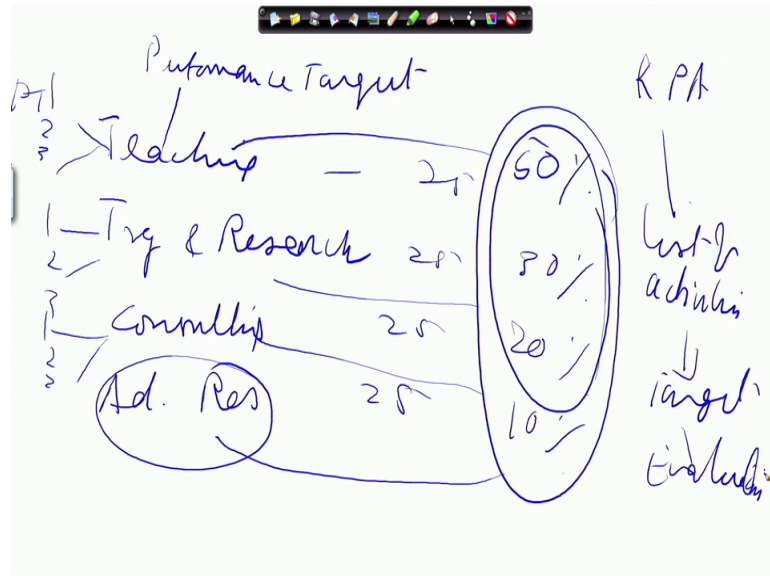 Performance Target
KPA
PT 1
2
3
Teaching — 25 50%
1 Trg & Research 25 30%
2
3
1 Consulting 25 20%
2
3
Ad. Res 25 10%
List of
activities
Target
Evaluation